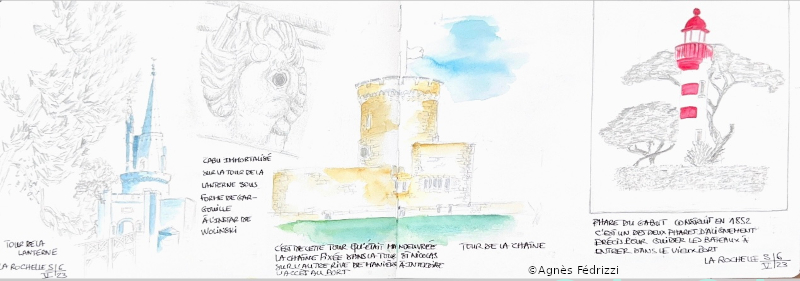 TOUR DE LA
LANTERNE
LA ROCHELLE 5/6
VI 23
CABU IMMORTALISÉ
SUR LA TOUR DE LA
LANTERNE SOUS
FORME DE GAR-
GOUILLE
À L'INSTAR DE
WOLINSKI
C'EST DE CETTE TOUR QU'ÉTAIT MANOEUVRÉE
LA CHAÎNE FIXÉE DANS LA TOUR ST NICOLAS
SUR L'AUTRE RIVE DE MANIÈRE À INTERDIRE
L'ACCÈS AU PORT
TOUR DE LA CHAÎNE
PHARE DU GABUT CONSTRUIT EN 1852
C'EST UN DES DEUX PHARES D'ALIGNEMENT
PRÉCIS POUR GUIDER LES BATEAUX À
ENTRER DANS LE VIEUX PORT
LA ROCHELLE 5/6
VI 23
©Agnès Fédrizzi